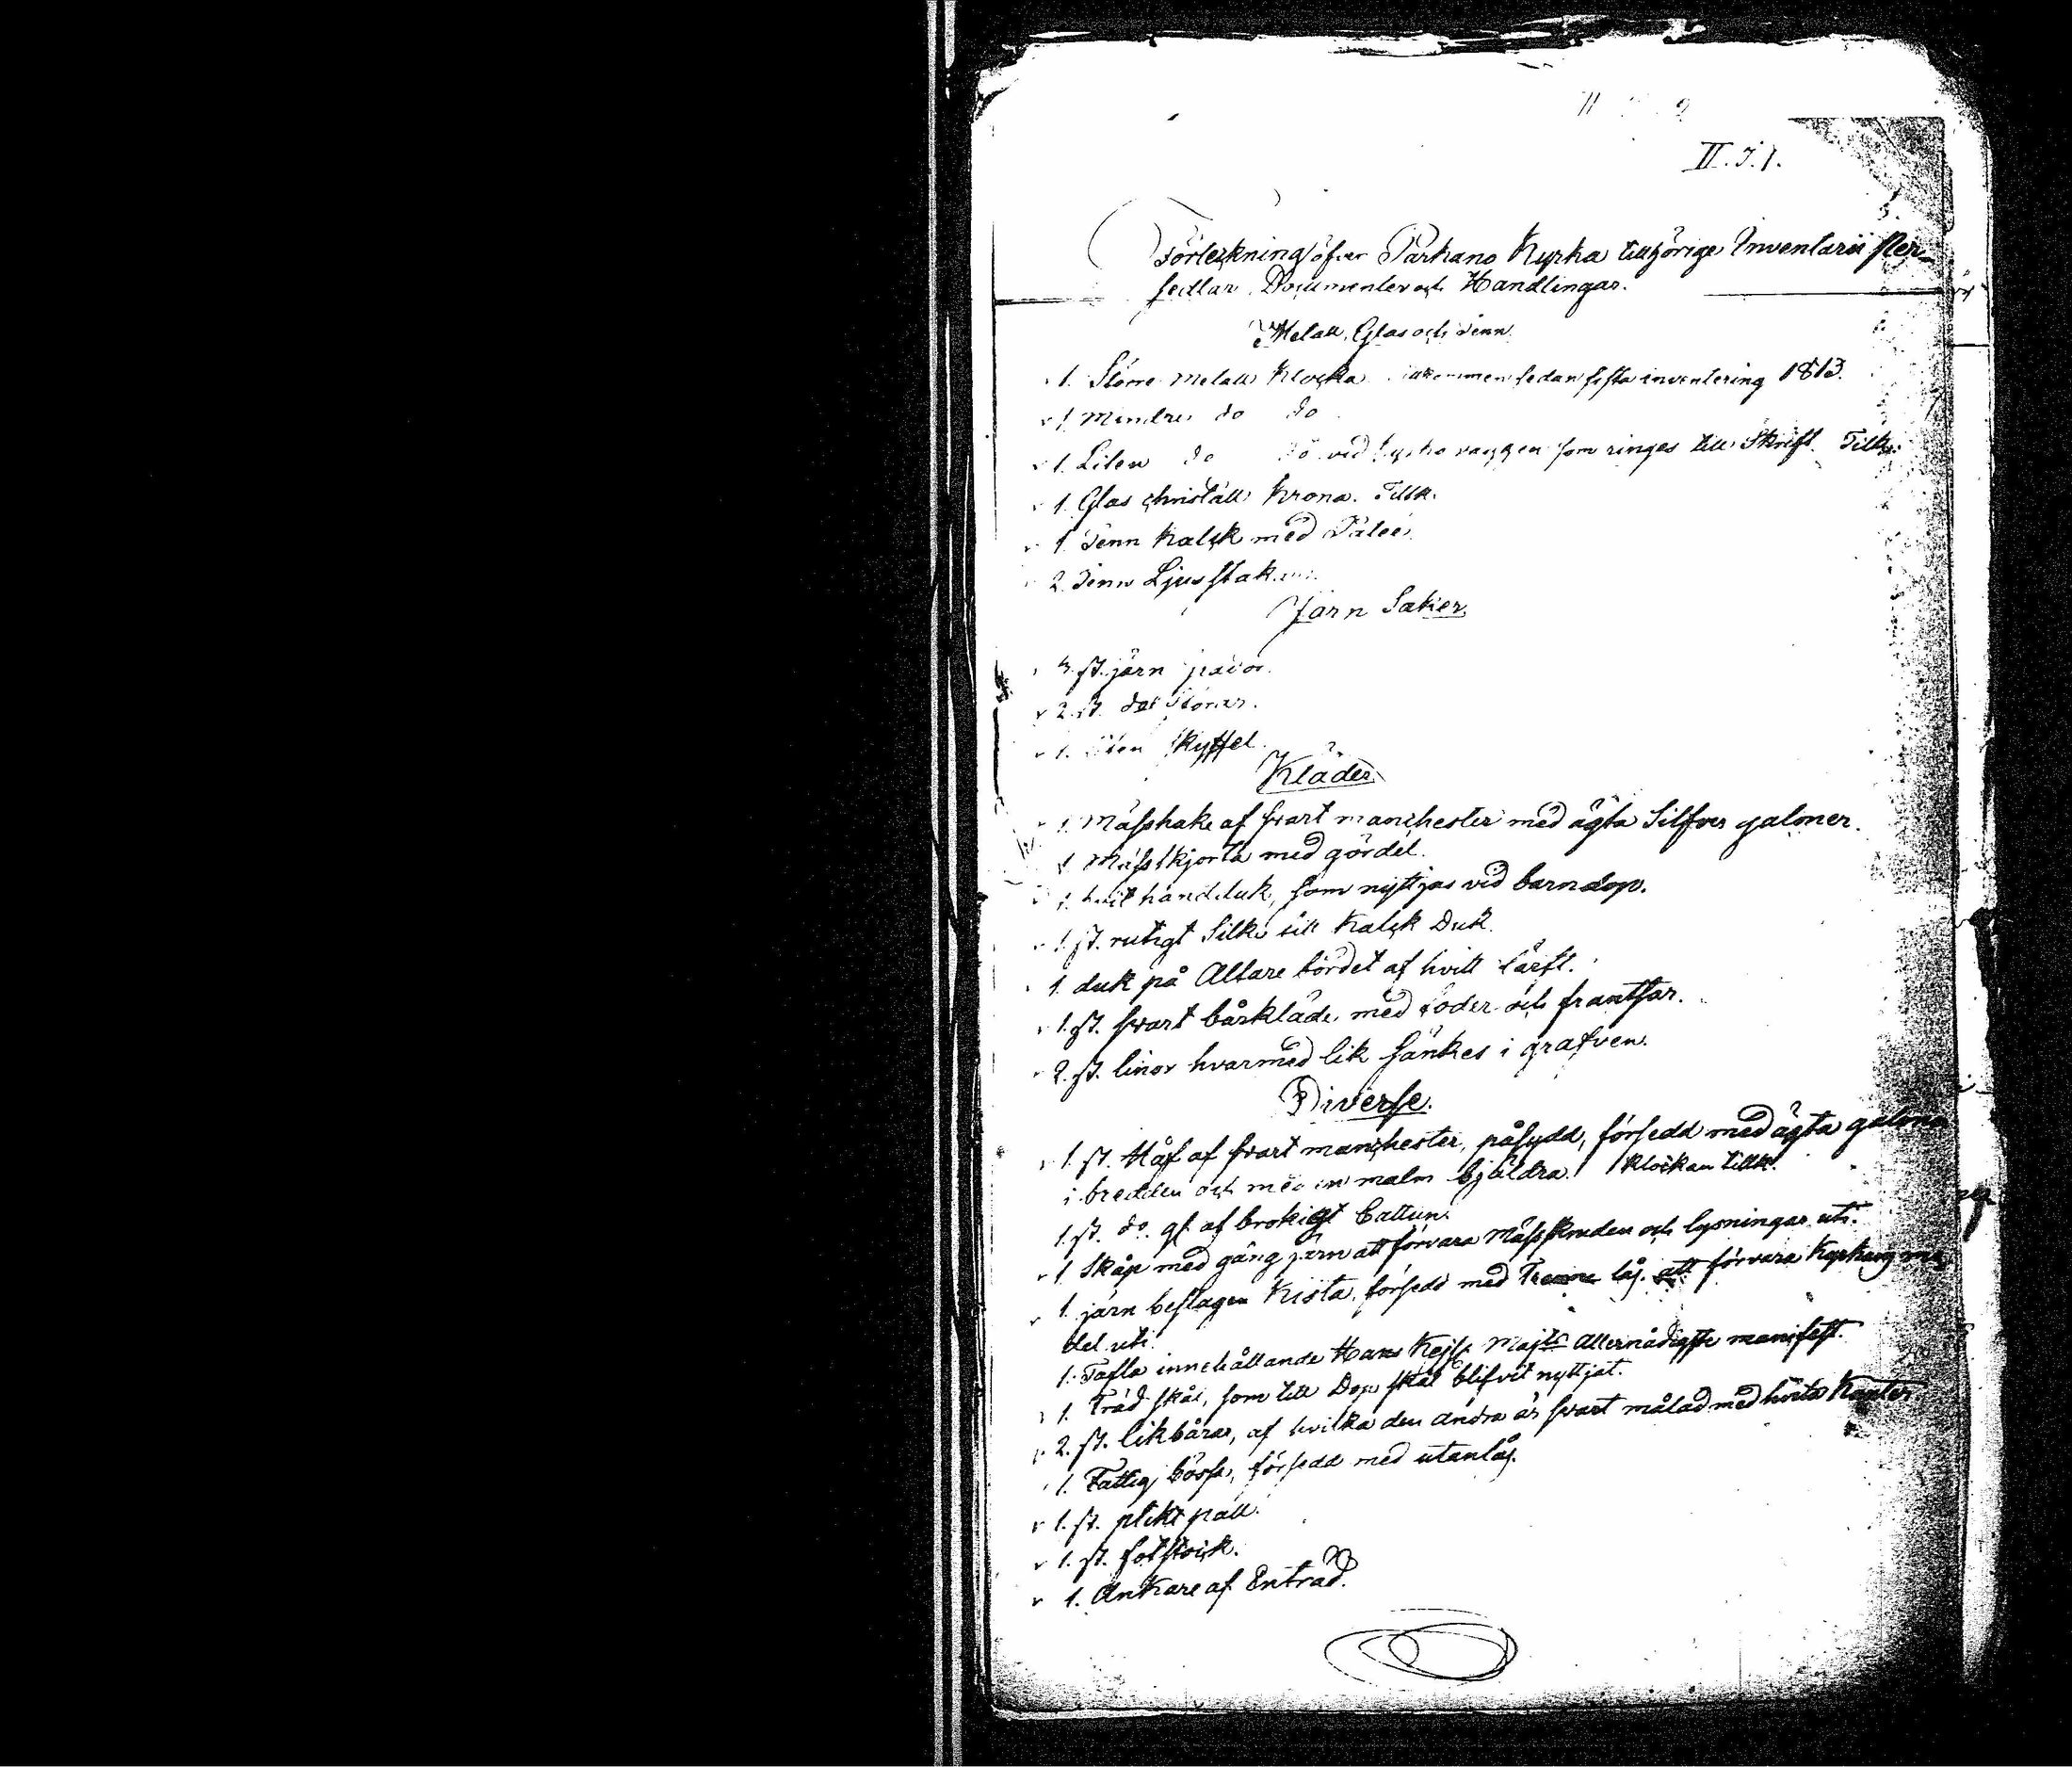 II. J. 1.
Förteckning öfver Parkano Kyrka tillhörige Inventarii Per-
sedlar Documenter och Handlingar.
Metall, Glas och Tenn
1. Större Metall Klocka tillkommen sedan sista inventering 1813.
1 Mindre do do
1. Liten do do vid kyrko väggen som ringes till Skrift. Tillk.
1. Glas christall Krona. Tillk.
1 Tenn Kalck med Paten
2. Tenn Ljusstakar
Jern Saker
3. st. järn
2. st. do Störar.
1. liten skyffel.
Kläder
1. Mässhake af svart manchester med ägta Silfver galoner.
1 Mässskjorta med gördel.
1. hvit handduk, som nyttjas vid barndop.
1. st. rutigt Silke till Kalck Duk.
1. duk på Altare bordet af hvitt lärft.
1. st. svart bårkläde, med foder och frantsar.
2. st. linor hvarmed lik sänkes i grafven.
Diverse.
1. st. Håf af svart manchester, påsydd, försedd med ägta galoner
i bredden och med en malm bjäldra. / klockan tillk.
1. st. do gl. af brokigt Cattun.
1 Skåp med gång järn att förvara Mässskruden och lysningar uti.
1. järn beslagen Kista, försedd med Trenne lås. att förvara Kyrkans me-
del uti.
1. Tafla innehållande Hans Kejs. Majts Allernådigste manifest.
1. Träd skål, som till Dop skål blifvit nyttjat.
2. st. likbårar, af hvilka den andra är svart målad med hvita Kanter
1. Fattig bössa, försedd med utanlås.
1. st. plikt pall.
1. st. fotstock.
1. Ankare af Enträd.